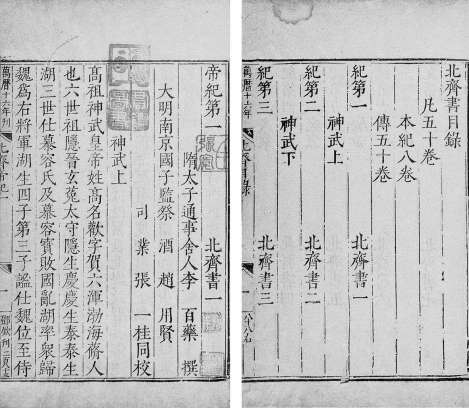 北齊書目錄
凡五十卷
本紀八卷
傳五十卷
紀第一 北齊書一
神武上
紀第二 北齊書二
神武下
紀第三 北齊書三
萬曆十六年
北齊書目錄
一
帝紀第一 北齊書一
隋太子通事舍人李 百藥 撰
大明南京國子監祭 酒 趙 用賢
司 業 張 一桂同校
神武上
髙祖神武皇帝姓髙名歡字賀六渾渤海蓨人
也六世祖隱晉玄菟太守隱生慶慶生泰泰生
湖三世仕慕容氏及慕容寳敗國亂湖率衆歸
魏爲右將軍湖生四子第三子謐仕魏位至侍
萬曆十六年刊
北齊帝紀一
一